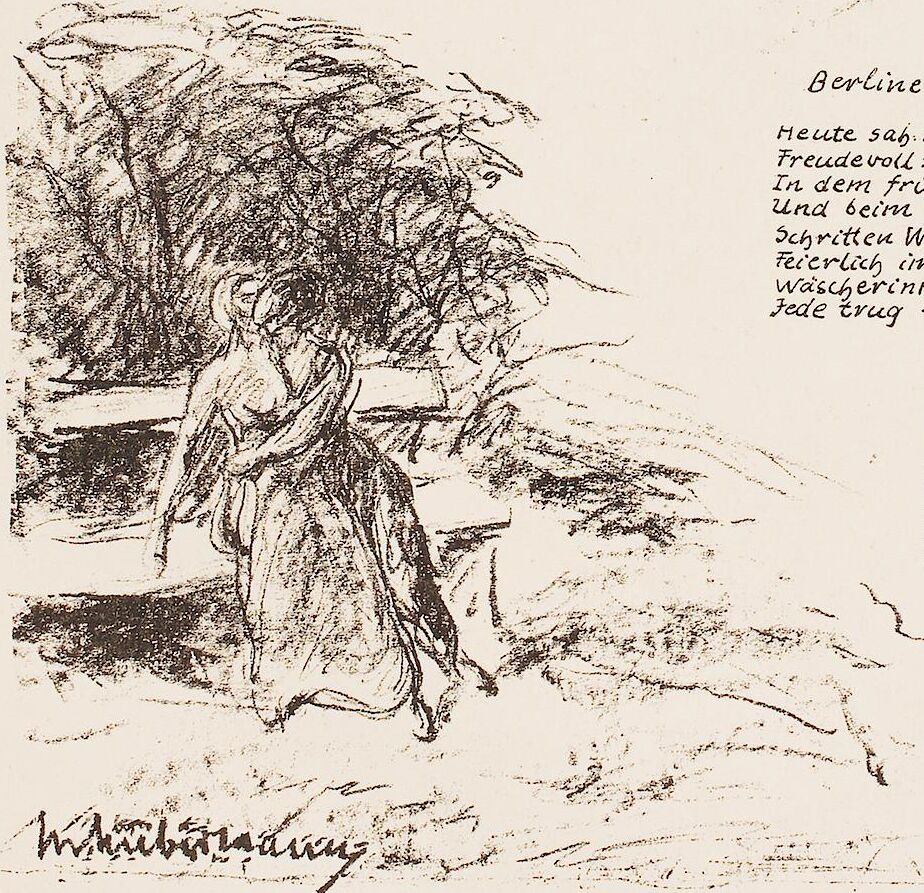 Berline
Heute sah
Freudevoll
In dem frü
Und beim
Schritten W
Feierlich in
Wäscherin
Jede trug
M Liebermann